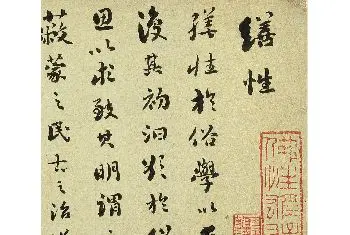 繕性
繕性於俗學以
復其初汩欲於俗
思以求致其明謂
蔽蒙之民古之治